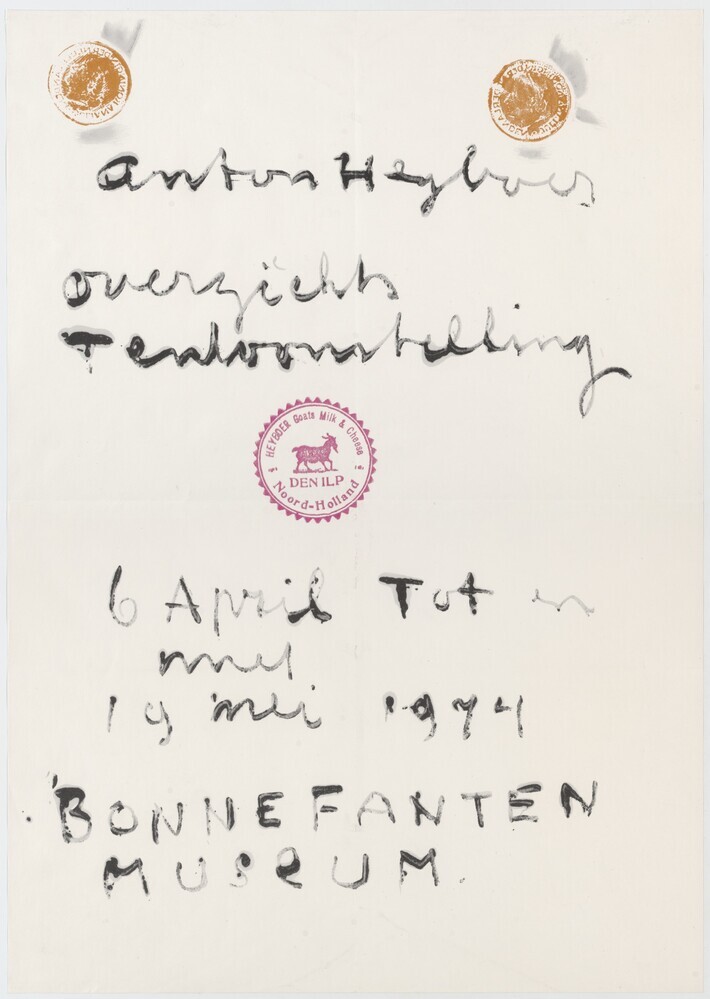 anton Heyboer
overzichts
Tentoonstelling
HEYBOER Goats Milk & Cheese
DEN ILP
Noord-Holland
6 April Tot en
met
19 mei 1974
BONNEFANTEN
MUSEUM.